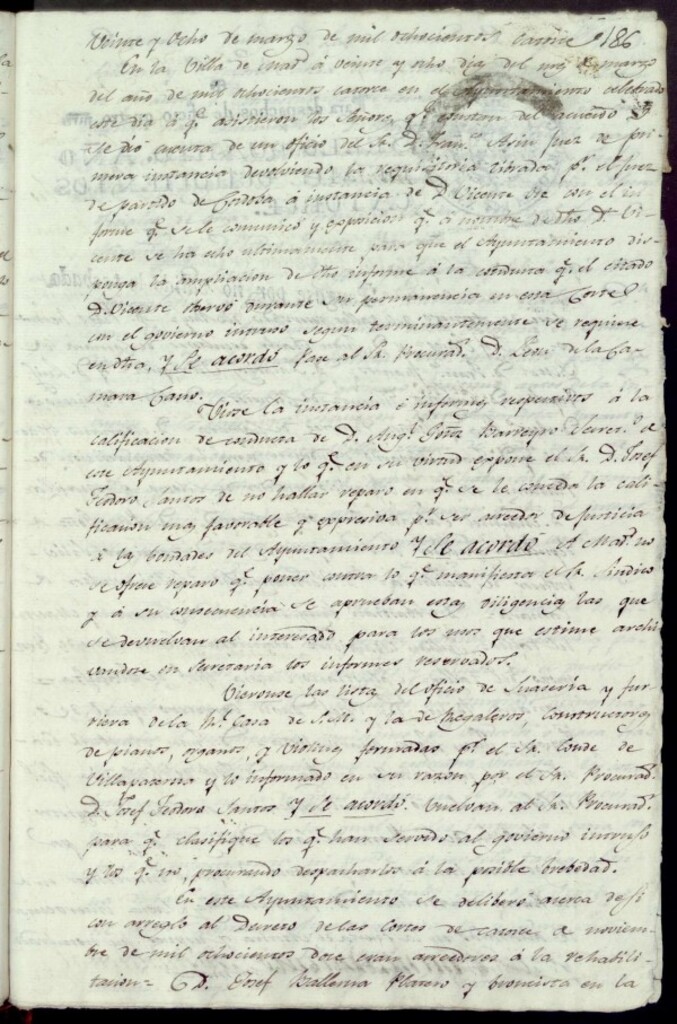 Veinte y Ocho de marzo de mil ochocientos Catorce 186
En la Villa de Mad.d á veinte y ocho dias del mes de marzo
del año de mil ochocientos catorce en el Ayuntamiento celebrado
este dia á q.e asistieron los Señores q.e constan del acuerdo
Se dió cuenta de un oficio del Sr. D. Fran.co Asin juez de pri-
mera instancia devolviendo la requisitoria librada p.r el juez
de partido de Cordoba á instancia de D. Vicente con el in
forme q.e se le comunicó y exposicion q.e á nombre de dho D. Vi-
cente se ha echo ultimamente para que el Ayuntamiento dis-
ponga la ampliacion de dho informe á la conducta q.e el citado
D. Vicente observó durante su permanencia en esta Corte
con el govierno intruso segun terminantemente se requiere
en dha, Y Se acordó Pase al Sr. Procurad.r D. Leon de la Ca-
mara Cano.
Viose la instancia é informes respectivos á la
calificacion de conducta de D. Ang.l Gonz Barreyro Secret.o de
este Ayuntamiento y lo q.e en su virtud expone el Sr. D. Josef
Isidoro Santos de no hallar reparo en q.e se le conceda la cali-
ficacion mas favorable y expresiva p.r ser acreedor de Justicia
á las bondades del Ayuntamiento Y Se acordó A Mad.d no
se ofrece reparo q.e poner contra lo q.e manifiesta el Sr. Sindico
y á su consecuencia se aprueban estas diligencias las que
se devuelvan al interesado para los usos que estime archi
vandose en Secretaria los informes reservados.
Vieronse las listas del oficio de Guaseria y fur-
riera de la R.l Casa de S.M. y la de Regaleros, Constructores
de pianos, organos, y Violines formadas p.r el Sr. Conde de
Villapaterna y lo informado en su razon por el Sr. Procurad.r
D. Josef Isidoro Santos Y Se acordó Vuelvan al Sr. Procurad.r
para q.e clasifique los q.e han servido al govierno intruso
y los q.e no, procurando despacharlos á la posible brebedad.
En este Ayuntamiento se deliberó acerca de si
con arreglo al Decreto de las Cortes de catorce de noviem-
bre de mil ochocientos doce eran acreedores á la rehabili-
tacion= D. Josef Ballerna Platero y broncista en la